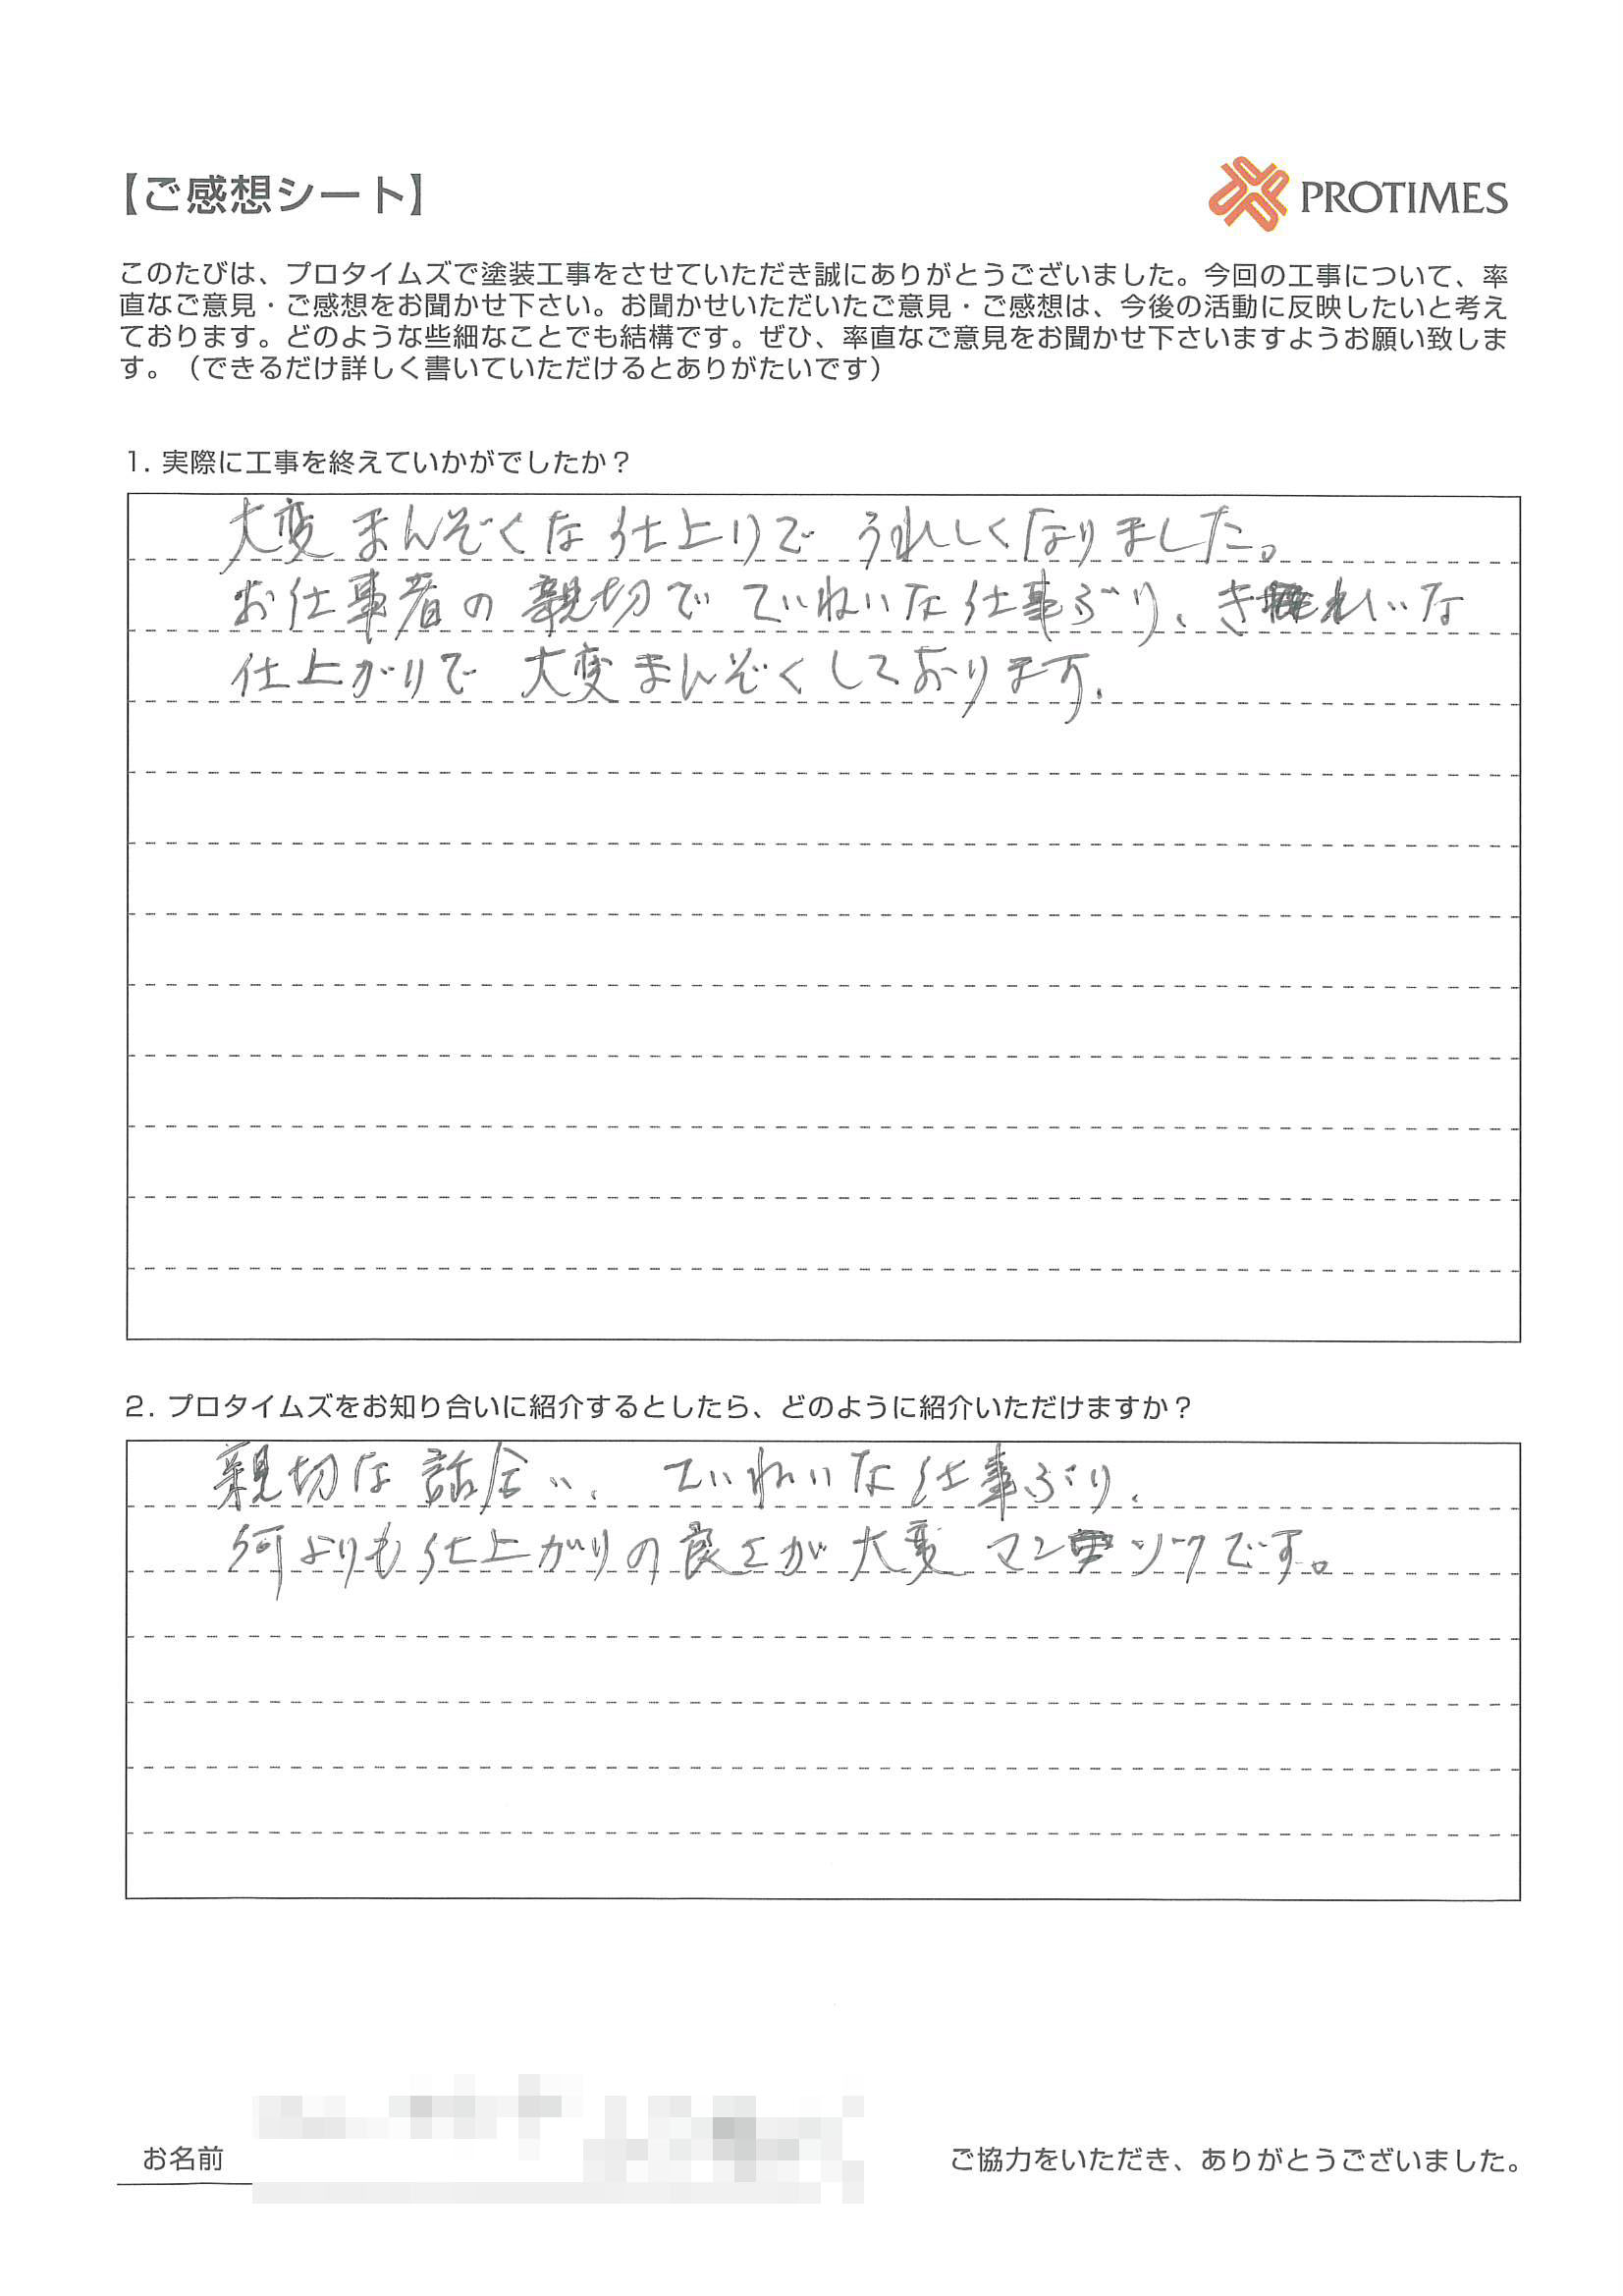 【ご感想シート】
PROTIMES
このたびは、プロタイムズで塗装工事をさせていただき誠にありがとうございました。今回の工事について、率
直なご意見・ご感想をお聞かせ下さい。お聞かせいただいたご意見・ご感想は、今後の活動に反映したいと考え
ております。どのような些細なことでも結構です。ぜひ、率直なご意見をお聞かせ下さいますようお願い致しま
す。（できるだけ詳しく書いていただけるとありがたいです）
1. 実際に工事を終えていかがでしたか？
大変まんぞくな仕上りで うれしくなりました。
お仕事者の親切でていねいな仕事ぶり、きれいな
仕上がりで 大変まんぞくしております。
2. プロタイムズをお知り合いに紹介するとしたら、どのように紹介いただけますか？
親切な話合い、ていねいな仕事ぶり、
何よりも仕上がりの良さが大変マンゾクです。
お名前
ご協力をいただき、ありがとうございました。